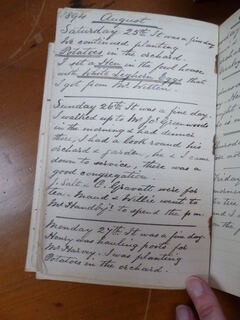 1894 August
Saturday 25th It was a fine day
We continued planting
Potatoes in the orchard.
I set a Hen in the fowl house
with White Leghorn Eggs that
I got from Mr
Sunday 26th It was a fine day.
I walked up to Mr Jos Greenwoods
in the morning & had dinner
there, I had a look round his
orchard & garden, he & I came
down to service, there was a
good congregation.
J. Salt & C. Gravatt were for
tea. Maud & Willie went to
Mr to spend the p.m.
Monday 27th It was a fine day.
Henry was hauling posts for
Mr Harvey. I was planting
Potatoes in the orchard.